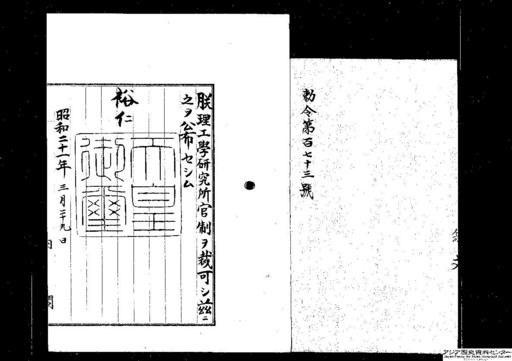 勅令第百七十三號
朕理工學研究所官制ヲ裁可シ茲ニ
之ヲ公布セシム
裕仁
天皇御璽
昭和二十一年三月二十九日
アジア歴史資料センター